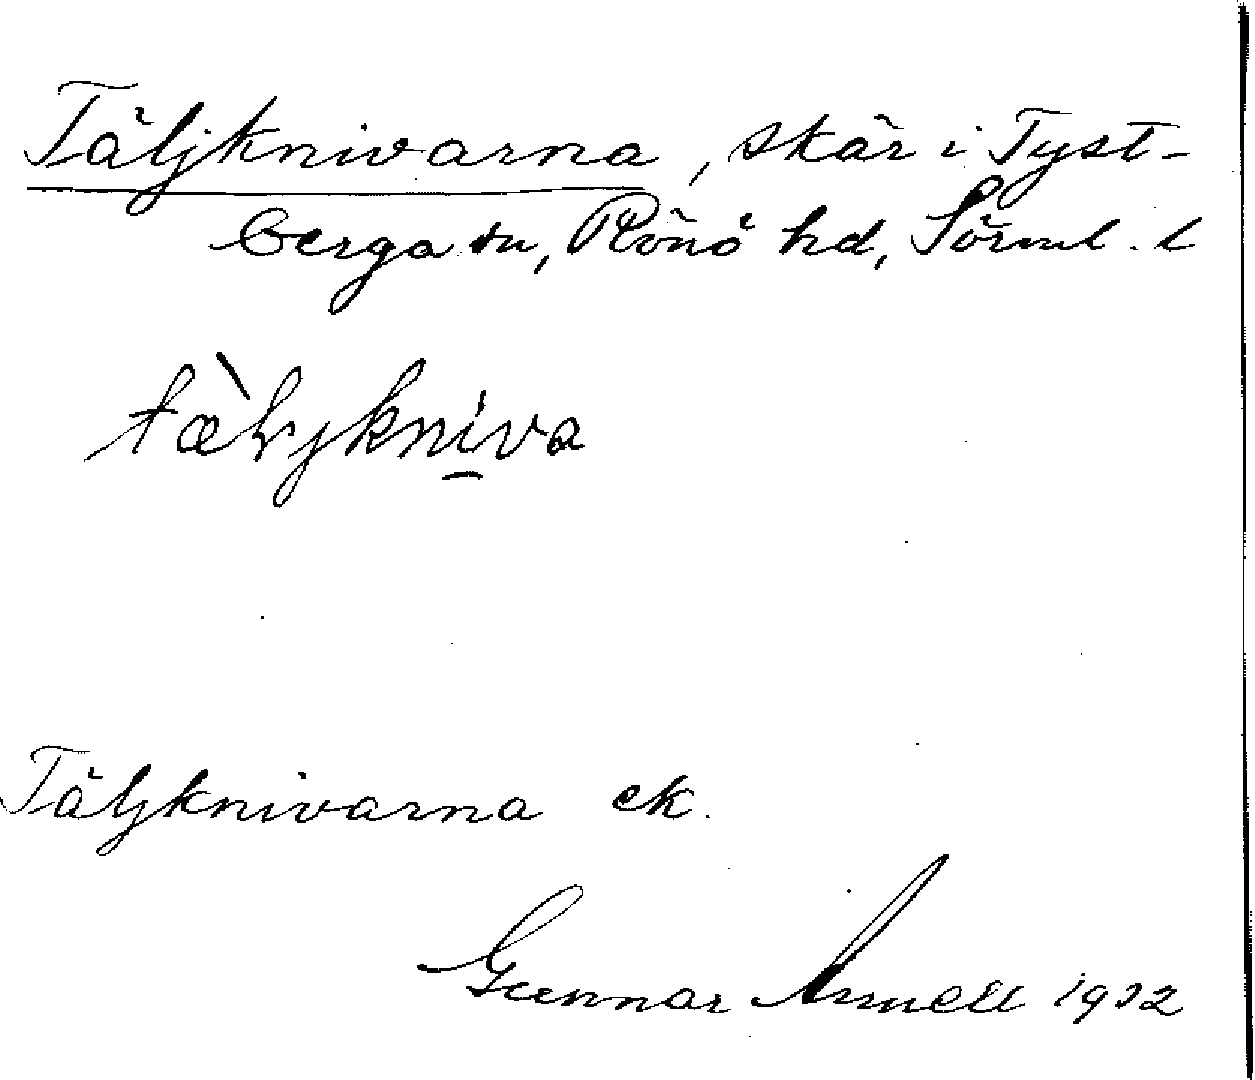 Täljknivarna, skär i Tyst-
berga sn, Rönö hd, Sörml. l
tæ̀ljkniva
Täljknivarna ek.
Gunnar Arnell 1932